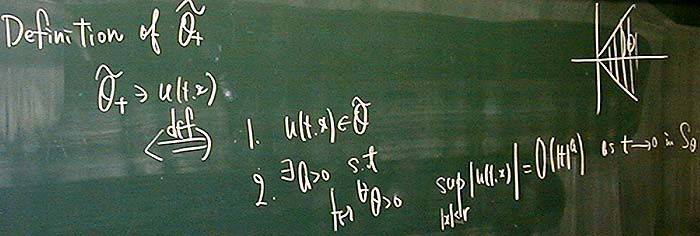 Definition of Õ₊
Õ₊ ∋ u(t,x)
⟺ def
1. u(t,x) ∈ Õ
2. ∃a>0 s.t
for ∀θ>0 sup |u(t,x)| = O(|t|ᵃ) as t→0 in S_θ
|x|<r
θ